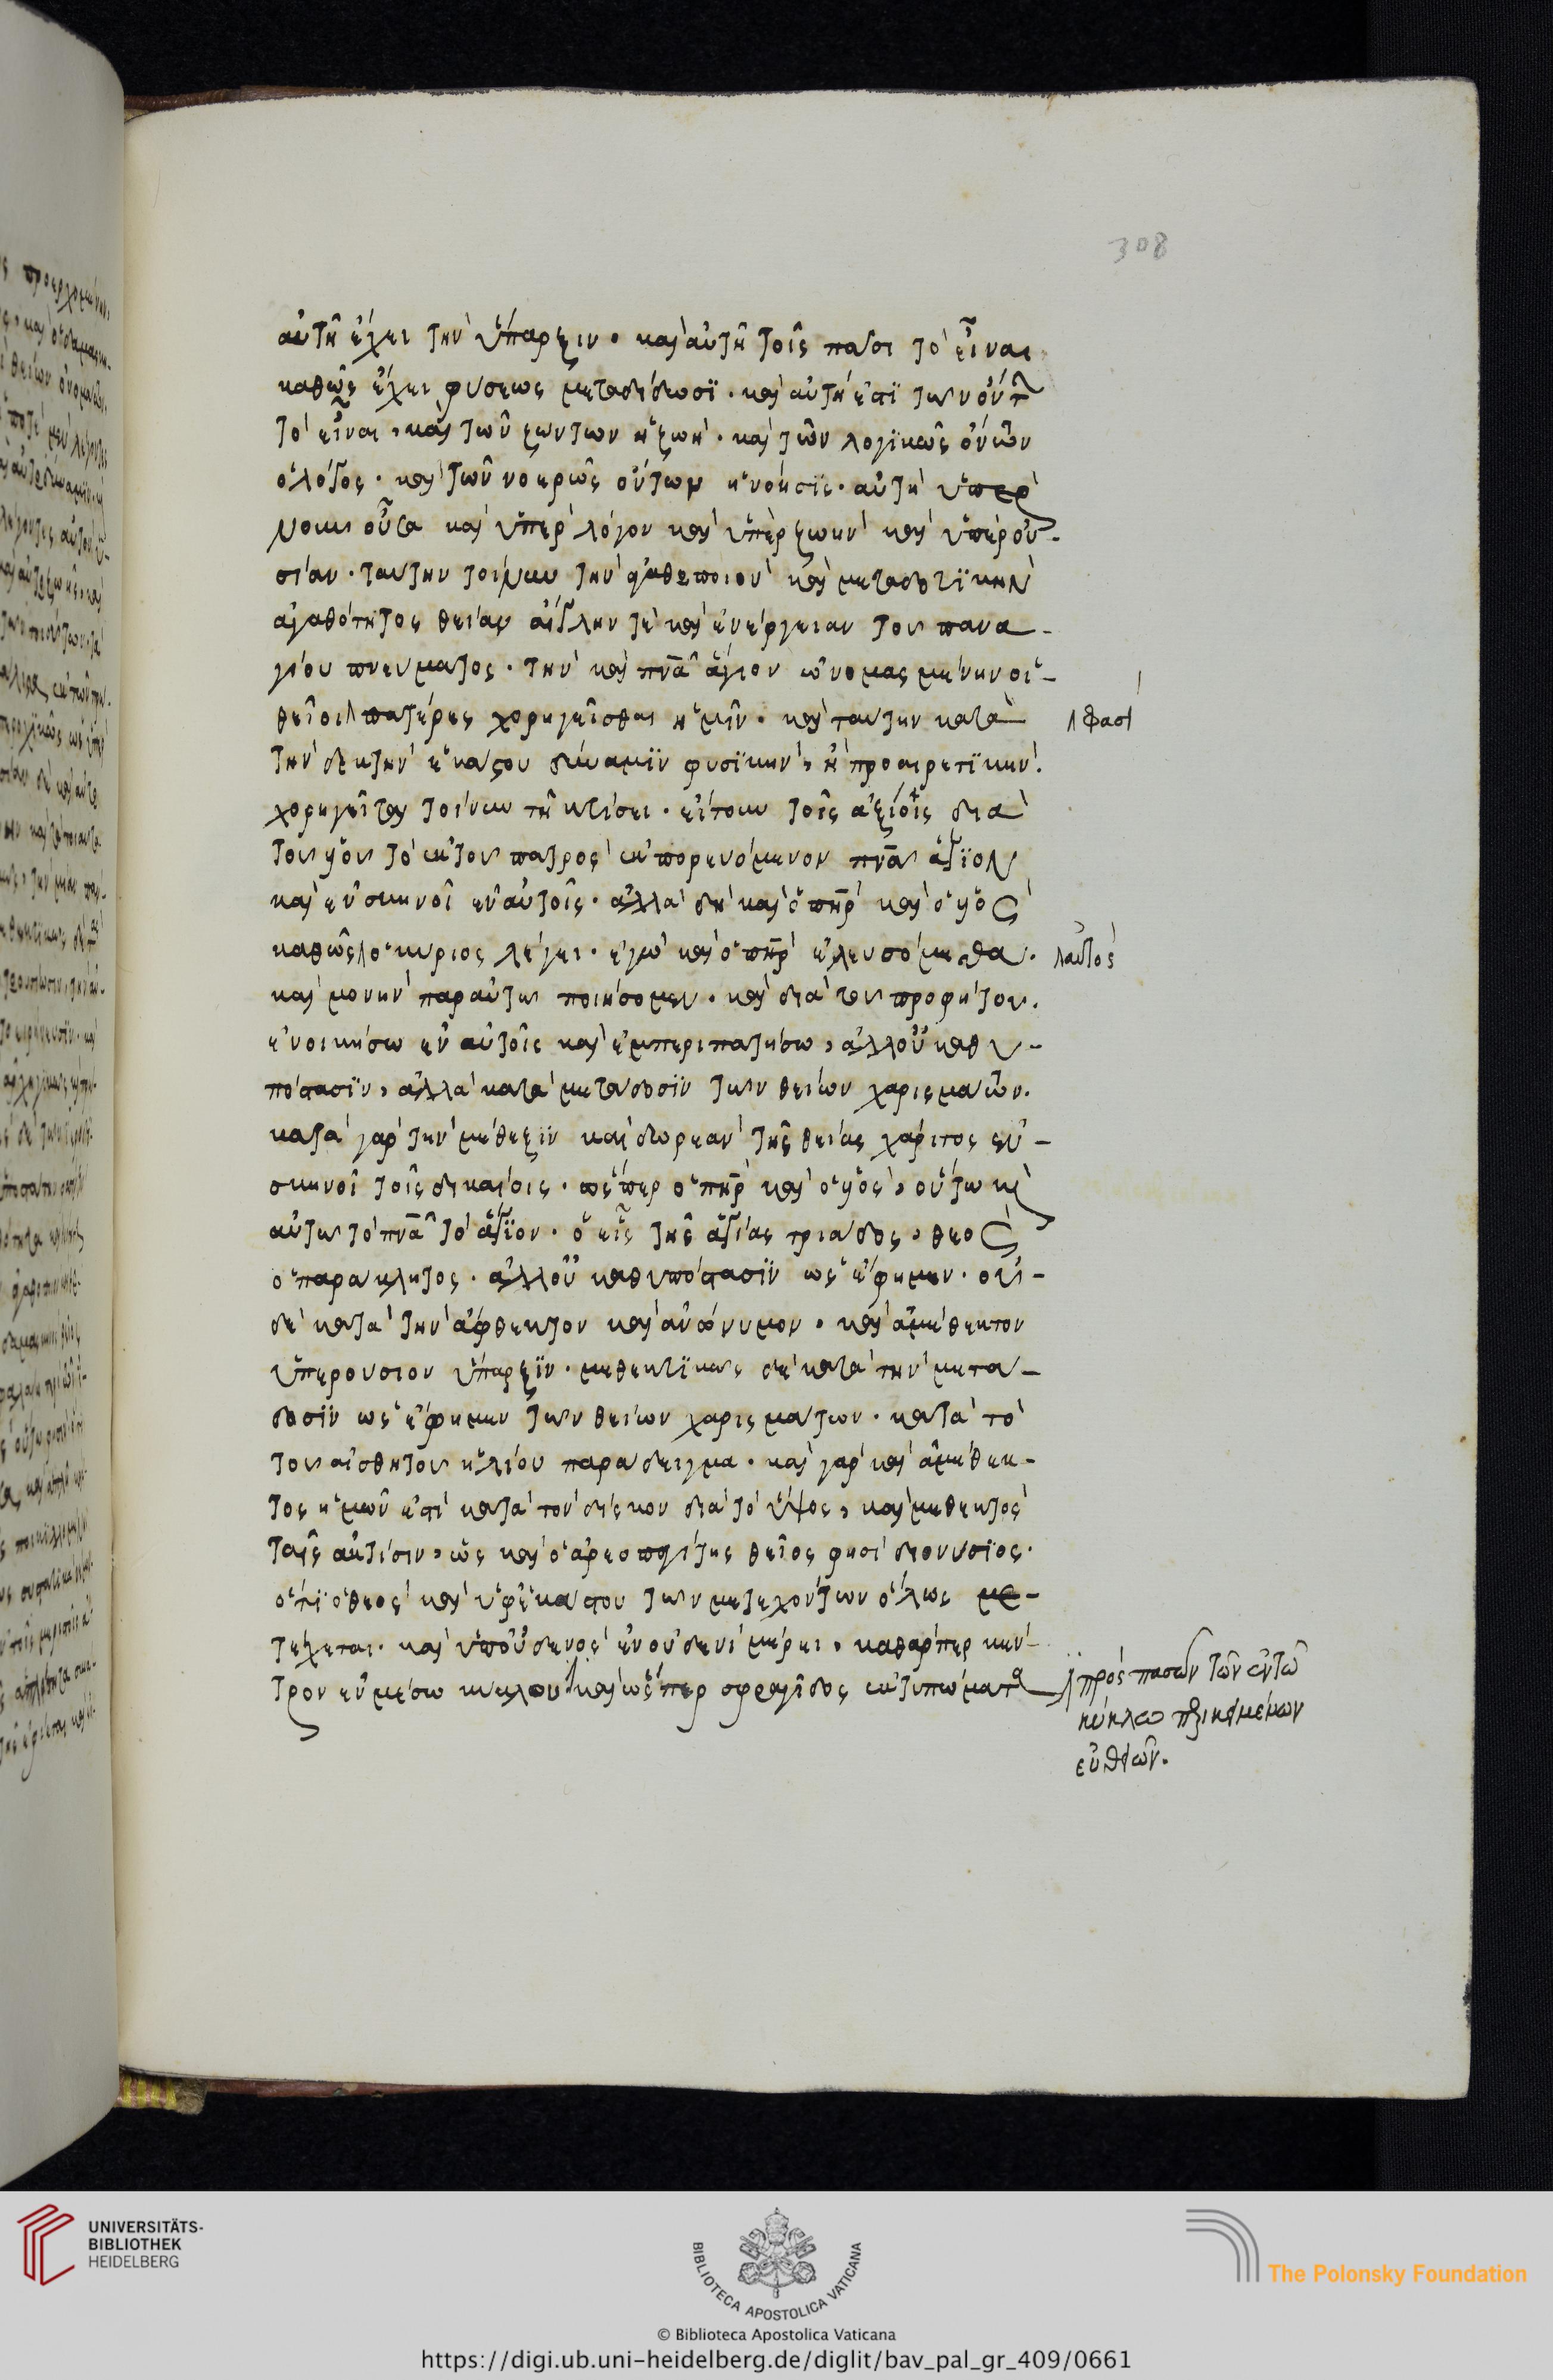 308
αὐτὴ ἔχει τὴν ὕπαρξιν. καὶ αὐτὴ τοῖς πᾶσι τὸ εἶναι
καθὼς ἔχει φύσεως μεταδίδωσϊ. καὶ αὐτή ἐστϊ τῶν ὄντων
τὸ εἶναι, καὶ τῶν ζώντων ἡ ζωὴ. καὶ τῶν λογϊκῶς ὄντων
ὁ λόγος. καὶ τῶν νοερῶς ὄντων ἡ νόησϊς. αὐτὴ ὑπὲρ
νοῦν οὖσα καὶ ὑπὲρ λόγον καὶ ὑπὲρ ζωὴν καὶ ὑπὲρ οὐ-
σίαν. ταύτην τοίνυν τὴν ἀγαθοποιὸν καὶ μεταδοτϊκὴν
ἀγαθότητος θείαν αἴγλην τὲ καὶ ἐνέργειαν τοῦ πανα-
γίου πνεύματος. τὴν καὶ πνᾶ ἅγιον ὠνομασμένην οἱ-
θεῖοι πατέρες χορηγεῖσθαι ἡμῖν. καὶ ταύτην κατὰ
τὴν δεκτὴν ἑκάστου δύναμϊν φυσϊκὴν, ἢ προαιρετϊκὴν.
χορηγεῖται τοίνυν τῆ κτίσει. εἴτουν τοῖς ἀξίοις διὰ
τοῦ υἱοῦ τὸ ἐκ τοῦ πατρὸς ἐκπορευόμενον πνᾶ ἅγϊον
καὶ ἐνσκηνοῖ ἐν αὐτοῖς. ἀλλὰ δὴ καὶ ὁ πηρ καὶ ὁ υἱὸς
καθὼς ὁ κύριος λέγει. ἐγὼ καὶ ὁ πηρ ἐλευσόμεθα.
καὶ μονὴν παραὐτῶ ποιήσομεν. καὶ διὰ τοῦ προφήτου.
ἐνοικήσω ἐν αὐτοῖς καὶ ἐμπεριπατήσω, ἀλλοὐ καθ υ-
πόστασϊν, ἀλλὰ κατὰ μετάδοσϊν τῶν θείων χαρισμάτων.
κατὰ γὰρ τὴν μέθεξϊν καὶ δωρεὰν τῆς θείας χάριτος ἐν-
σκηνοῖ τοῖς δικαίοις. ὥσπερ ὁ πηρ καὶ ὁ υἱὸς, οὕτω καὶ
αὐτῶ τὸ πνᾶ τὸ ἅγϊον. ὁ εἷς τῆς ἁγίας τριάδος, θεὸς
ὁ παράκλητος. ἀλλοὐ καθυπόστασϊν ὡς ἔφημεν. οὐ-
δὲ κατὰ τὴν ἄφθεκτον καὶ ἀνώνυμον, καὶ ἀμέθεκτον
ὑπερούσιον ὕπαρξϊν. μεθεκτϊκῶς δὲ κατὰ τὴν μετά-
δοσϊν ὡς ἔφημεν τῶν θείων χαρισμάτων. κατὰ τὸ
τοῦ αἰσθητοῦ ἡλίου παράδειγμα. καὶ γὰρ καὶ ἀμέθεκ-
τος ἡμῶν ἐστὶ κατὰ τὸν δίσκον διὰ τὸ ὕψος, καὶ μεθεκτὸς
ταῖς ἀκτίσιν, ὡς καὶ ὁ ἀρεοπαγίτης θεῖος φησὶ διονύσϊος.
ὅτϊ ὁ θεὸς καὶ ὑφἑκάστου τῶν μετεχόντων ὅλως με-
τέχεται. καὶ ὑποὐδενὸς ἐν οὐδενὶ μέρει, καθάρπερ κέν-
τρον ἐν μέσω κύκλου καὶ ὥσπερ σφραγῖδος ἐκτυπώματα
φασὶ
αὐτὸς
πρὸς πασῶν τῶν ἐν τῶ
κύκλω περικειμένων
εὐθειῶν.
UNIVERSITÄTS-
BIBLIOTHEK
HEIDELBERG
BIBLIOTECA APOSTOLICA VATICANA
The Polonsky Foundation
© Biblioteca Apostolica Vaticana
https://digi.ub.uni-heidelberg.de/diglit/bav_pal_gr_409/0661